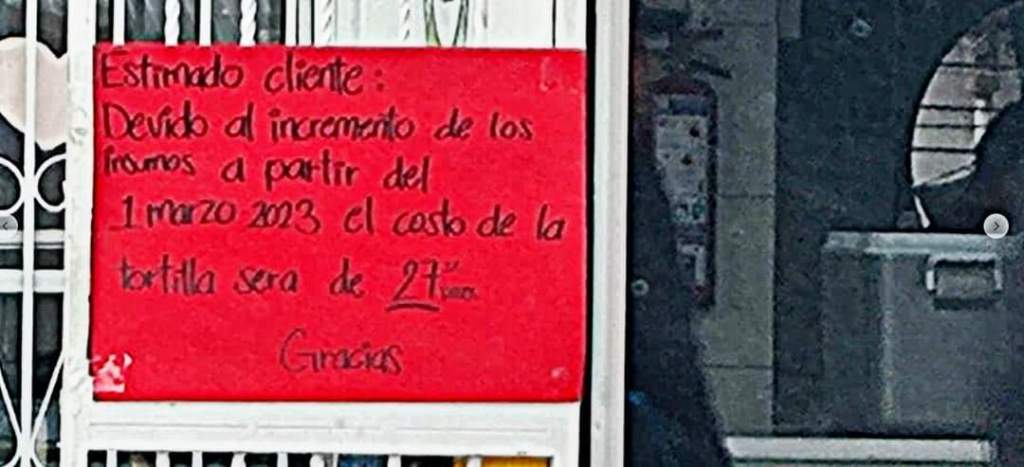 Estimado cliente:
Devido al incremento de los
insumos a partir del
1 marzo 2023 el costo de la
tortilla sera de 27
Gracias